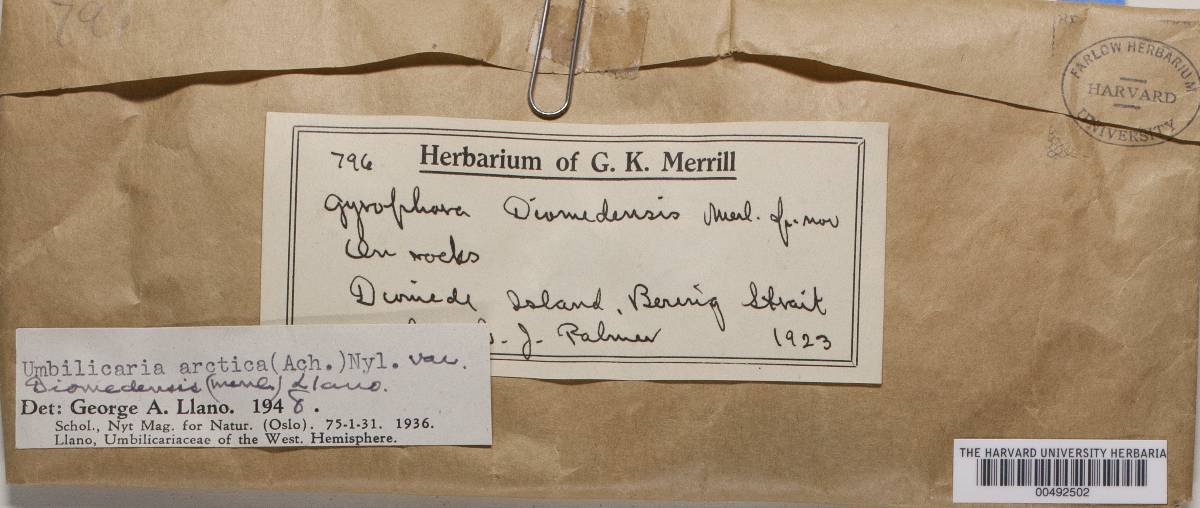 79
FARLOW HERBARIUM
HARVARD
UNIVERSITY
796 Herbarium of G. K. Merrill
Gyrophora Diomedensis Merl. sp. nov
On rocks
Diomede Island, Bering Strait
J. Palmer 1923
Umbilicaria arctica(Ach.)Nyl. var.
Diomedensis (Merrl.) Llano.
Det: George A. Llano. 1948.
Schol., Nyt Mag. for Natur. (Oslo). 75-1-31. 1936.
Llano, Umbilicariaceae of the West. Hemisphere.
THE HARVARD UNIVERSITY HERBARIA
00492502